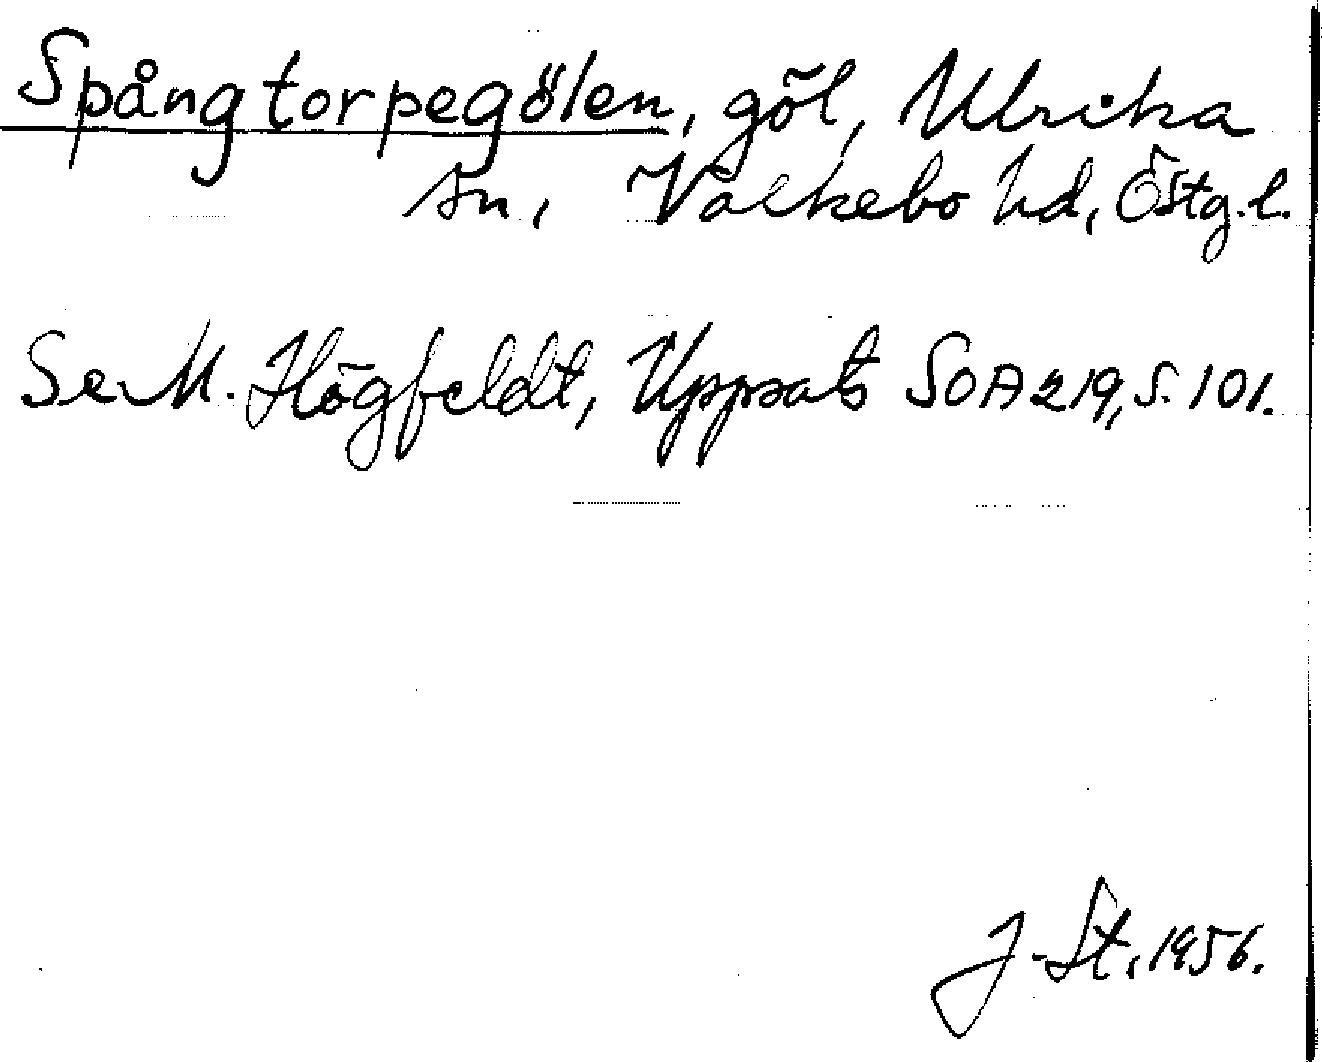 Spångtorpegölen, göl, Ulrika
sn, Valkebo hd, Östg.l.
Se M. Högfeldt, Uppsats SOA 219, s. 101.
J. St. 1956.